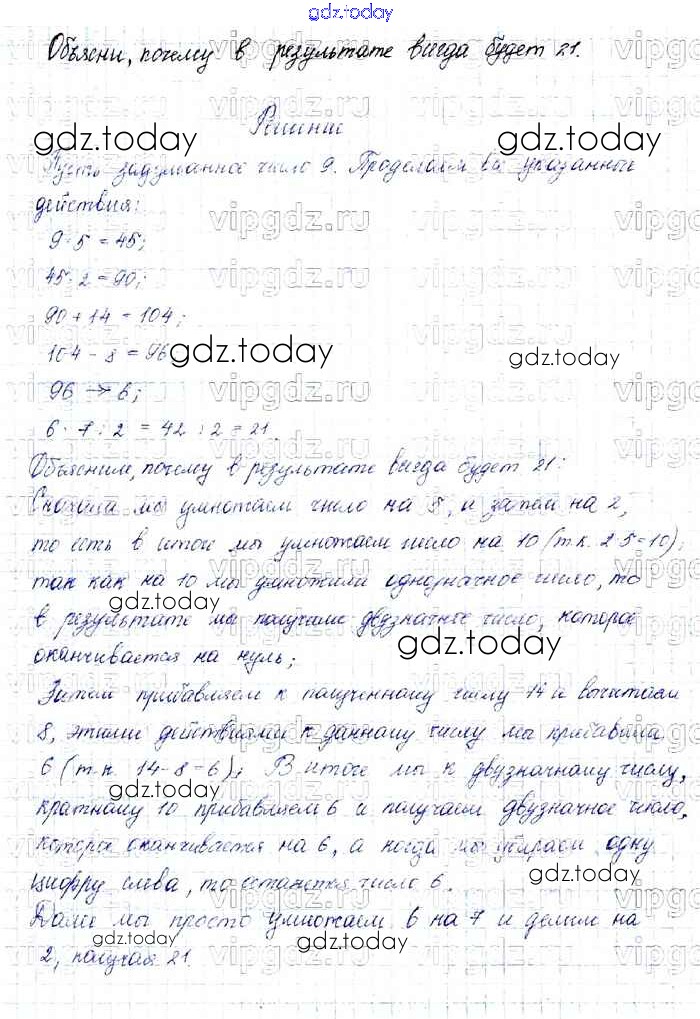 gdz.today
Объясни, почему в результате всегда будет 21.
Решение
Пусть задуманное число 9. Проделаем все указанные
действия:
9·5 = 45;
45·2 = 90;
90 + 14 = 104;
104 - 8 = 96
96 → 6;
6·7:2 = 42:2 = 21
Объясним, почему в результате всегда будет 21:
Сначала мы умножаем число на 5, и затем на 2,
то есть в итоге мы умножаем число на 10 (т.к. 2·5=10);
так как на 10 мы умножили однозначное число, то
в результате мы получили двузначное число, которое
оканчивается на нуль;
Затем прибавляем к полученному числу 14 и вычитаем
8, этими действиями к данному числу мы прибавили
6 (т.к. 14-8=6); В итоге мы к двузначному числу,
кратному 10 прибавляем 6 и получаем двузначное число,
которое оканчивается на 6, а когда мы убираем одну
цифру слева, то останется число 6.
Далее мы просто умножаем 6 на 7 и делим на
2, получая 21.